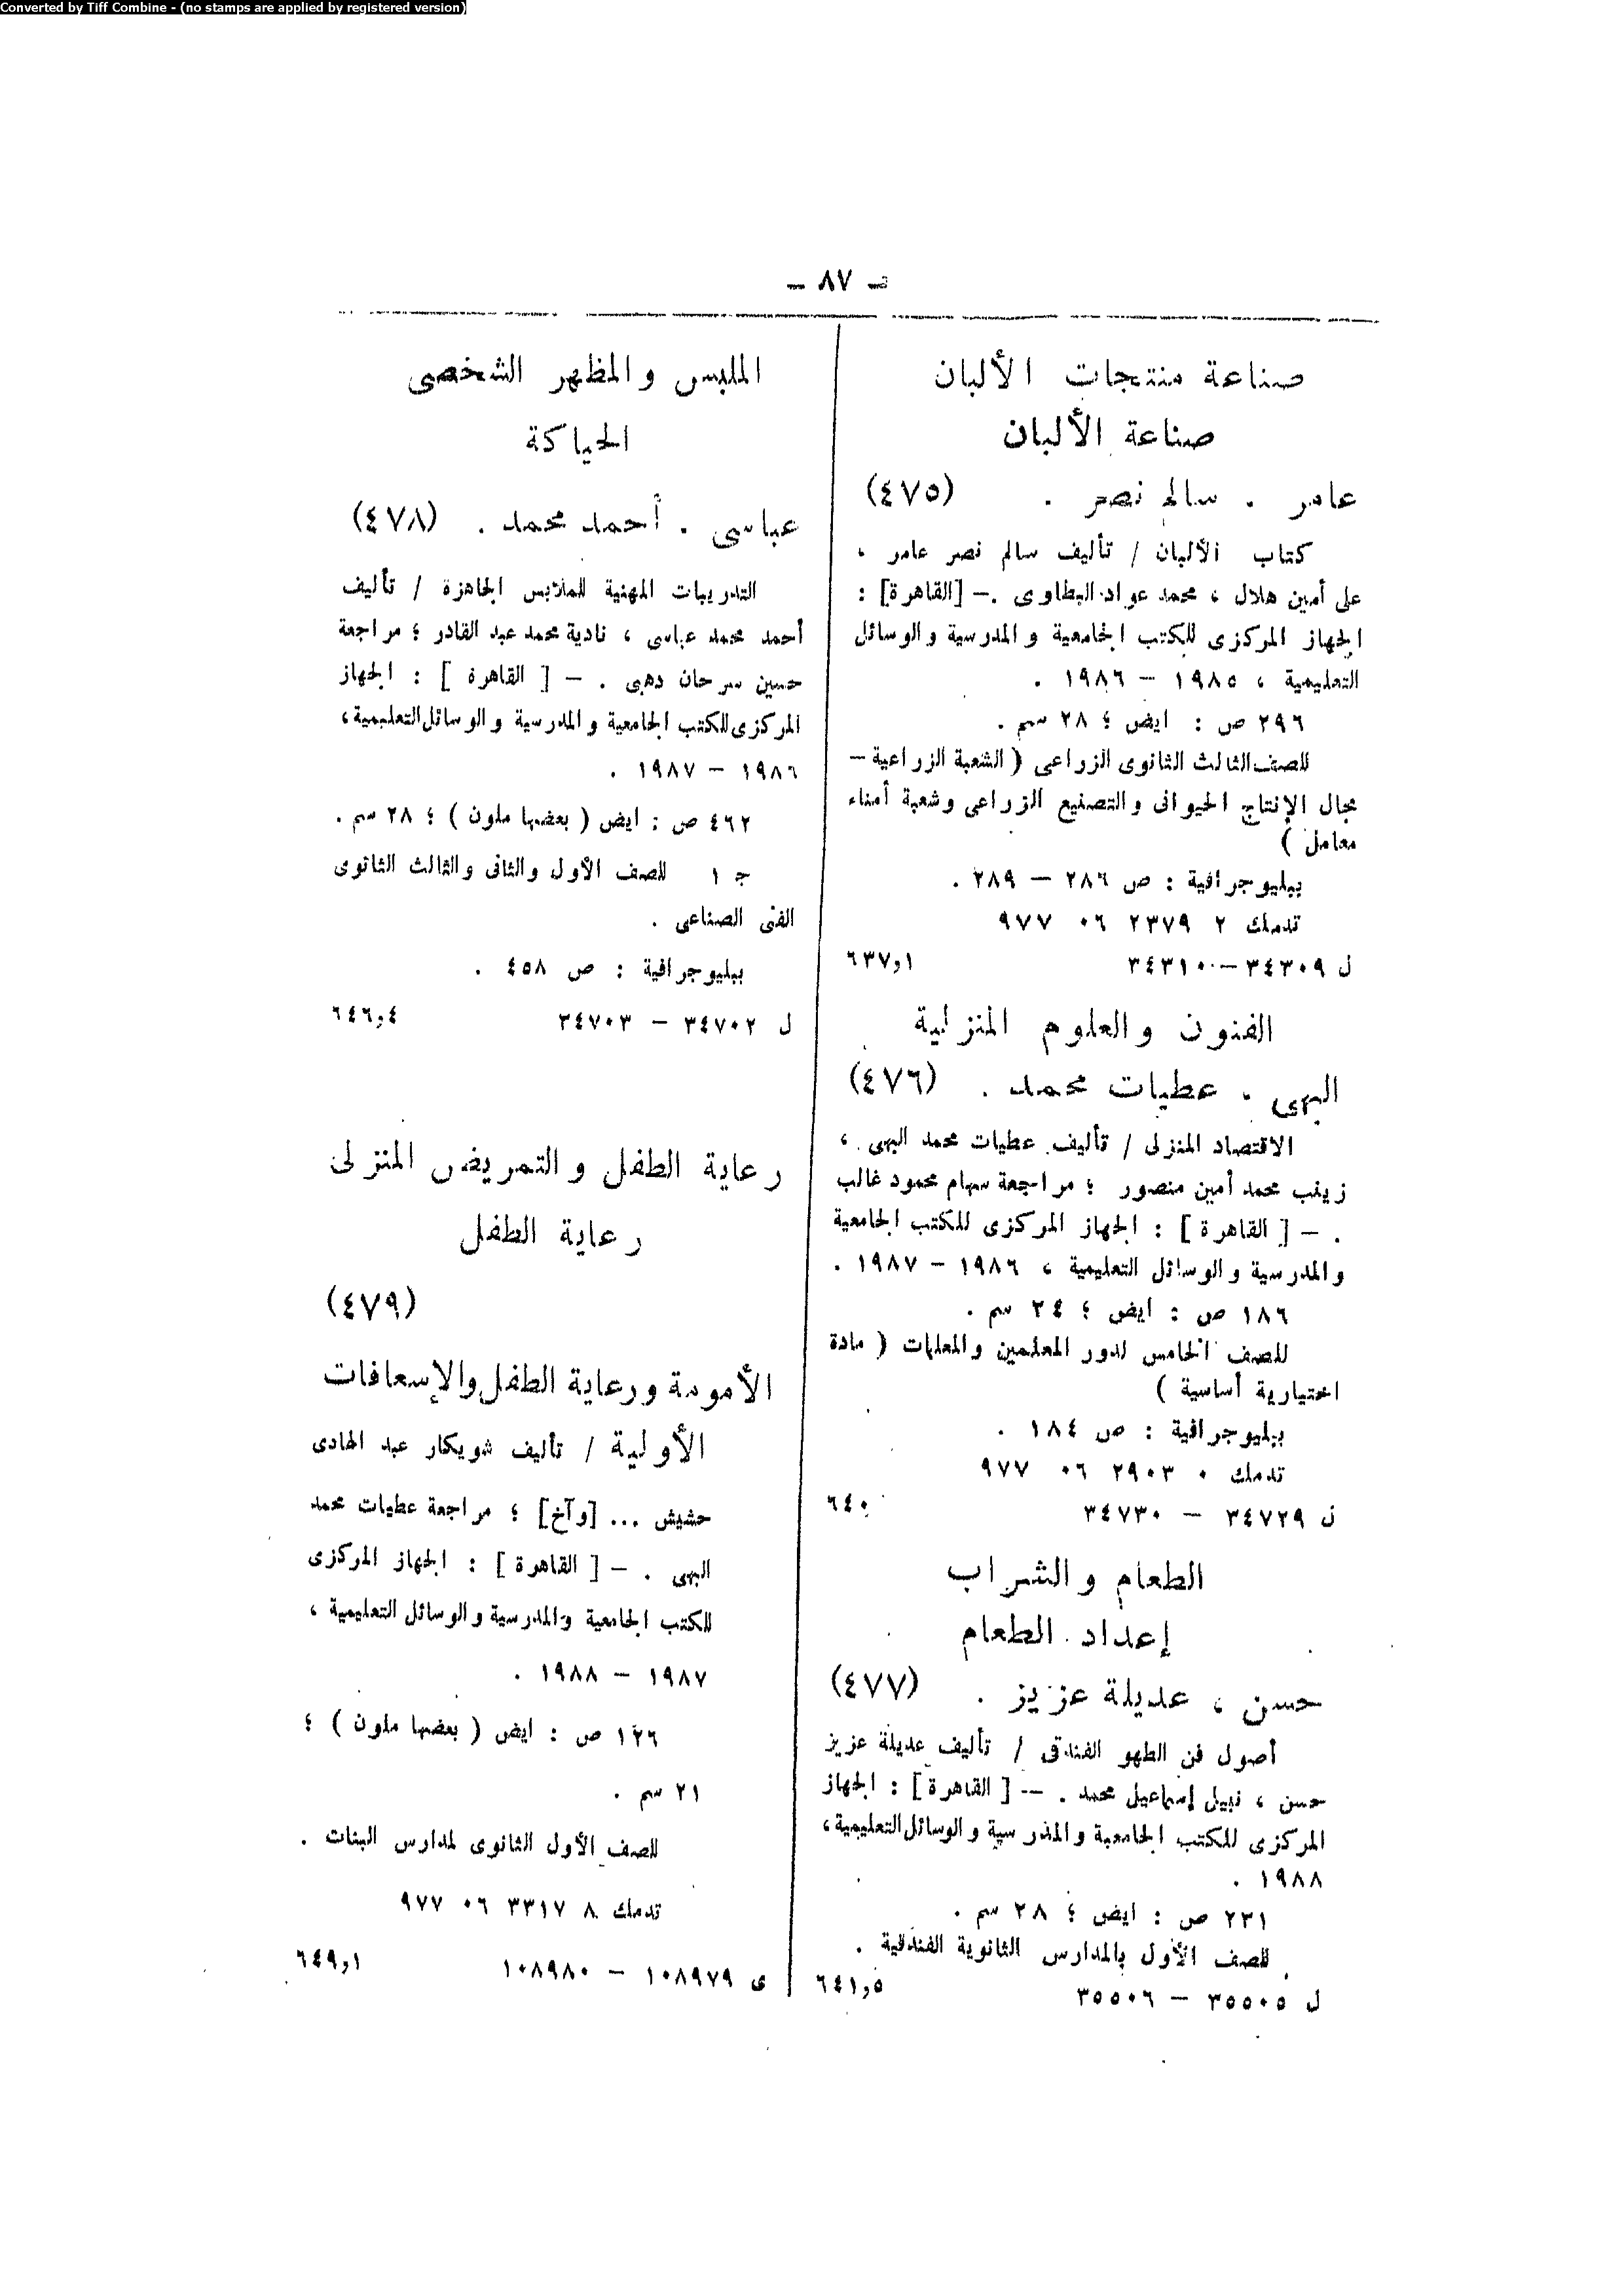 Converted by Tiff Combine - (no stamps are applied by registered version)
ـ ٨٧ ـ
صناعة منتجات الألبان
صناعة الألبان
عامر . سالم نصر . (٤٧٥)
كتاب الألبان / تأليف سالم نصر عامر ،
على أمين هلال ، محمد عواد البطاوى .– [القاهرة] :
الجهاز المركزى للكتب الجامعية والمدرسية والوسائل
التعليمية ، ١٩٨٥ – ١٩٨٦ .
٢٩٦ ص : ايض ؛ ٢٨ سم .
للصف الثالث الثانوى الزراعى ( الشعبة الزراعية –
مجال الإنتاج الحيوانى والتصنيع الزراعى وشعبة أمناء
معامل )
ببليوجرافية : ص ٢٨٦ – ٢٨٩ .
تدمك ٢ ٢٣٧٩ ٠٦ ٩٧٧
ل ٣٤٣٠٩ – ٣٤٣١٠ ٦٣٧,١
الفنون والعلوم المنزلية
البهى . عطيات محمد . (٤٧٦)
الاقتصاد المنزلى / تأليف عطيات محمد البهى ،
زينب محمد أمين منصور ؛ مراجعة سهام محمود غالب
. – [ القاهرة ] : الجهاز المركزى للكتب الجامعية
والمدرسية والوسائل التعليمية ، ١٩٨٦ – ١٩٨٧ .
١٨٦ ص : ايض ؛ ٢٤ سم .
للصف الخامس لدور المعلمين والمعلمات ( مادة
اختيارية أساسية )
ببليوجرافية : ص ١٨٤ .
تدمك ٠ ٢٩٠٣ ٠٦ ٩٧٧
ل ٣٤٧٢٩ – ٣٤٧٣٠ ٦٤٠
الطعام والشراب
إعداد الطعام
حسن ، عديلة عزيز . (٤٧٧)
أصول فن الطهو الفندقى / تأليف عديلة عزيز
حسن ، نبيل إسماعيل محمد . – [ القاهرة ] : الجهاز
المركزى للكتب الجامعية والمدرسية والوسائل التعليمية ،
١٩٨٨ .
٢٣١ ص : ايض ؛ ٢٨ سم .
للصف الأول بالمدارس الثانوية الفندقية .
ل ٣٥٥٠٥ – ٣٥٥٠٦ ٦٤١,٥
الملبس والمظهر الشخصى
الحياكة
عباسى . أحمد محمد . (٤٧٨)
التدريبات المهنية للملابس الجاهزة / تأليف
أحمد محمد عباسى ، نادية محمد عبد القادر ؛ مراجعة
حسين سرحان دهبى . – [ القاهرة ] : الجهاز
المركزى للكتب الجامعية والمدرسية والوسائل التعليمية ،
١٩٨٦ – ١٩٨٧ .
٤٦٢ ص : ايض ( بعضها ملون ) ؛ ٢٨ سم .
جـ ١ للصف الأول والثانى والثالث الثانوى
الفنى الصناعى .
ببليوجرافية : ص ٤٥٨ .
ل ٣٤٧٠٢ – ٣٤٧٠٣ ٦٤٦,٤
رعاية الطفل والتمريض المنزلى
رعاية الطفل
(٤٧٩)
الأمومة ورعاية الطفل والإسعافات
الأولية / تأليف شويكار عبد الهادى
حشيش ... [وآخ] ؛ مراجعة عطيات محمد
البهى . – [ القاهرة ] : الجهاز المركزى
للكتب الجامعية والمدرسية والوسائل التعليمية ،
١٩٨٧ – ١٩٨٨ .
١٢٦ ص : ايض ( بعضها ملون ) ؛
٢١ سم .
للصف الأول الثانوى لمدارس البنات .
تدمك ٨ ٣٣١٧ ٠٦ ٩٧٧
ى ١٠٨٩٧٩ – ١٠٨٩٨٠ ٦٤٩,١